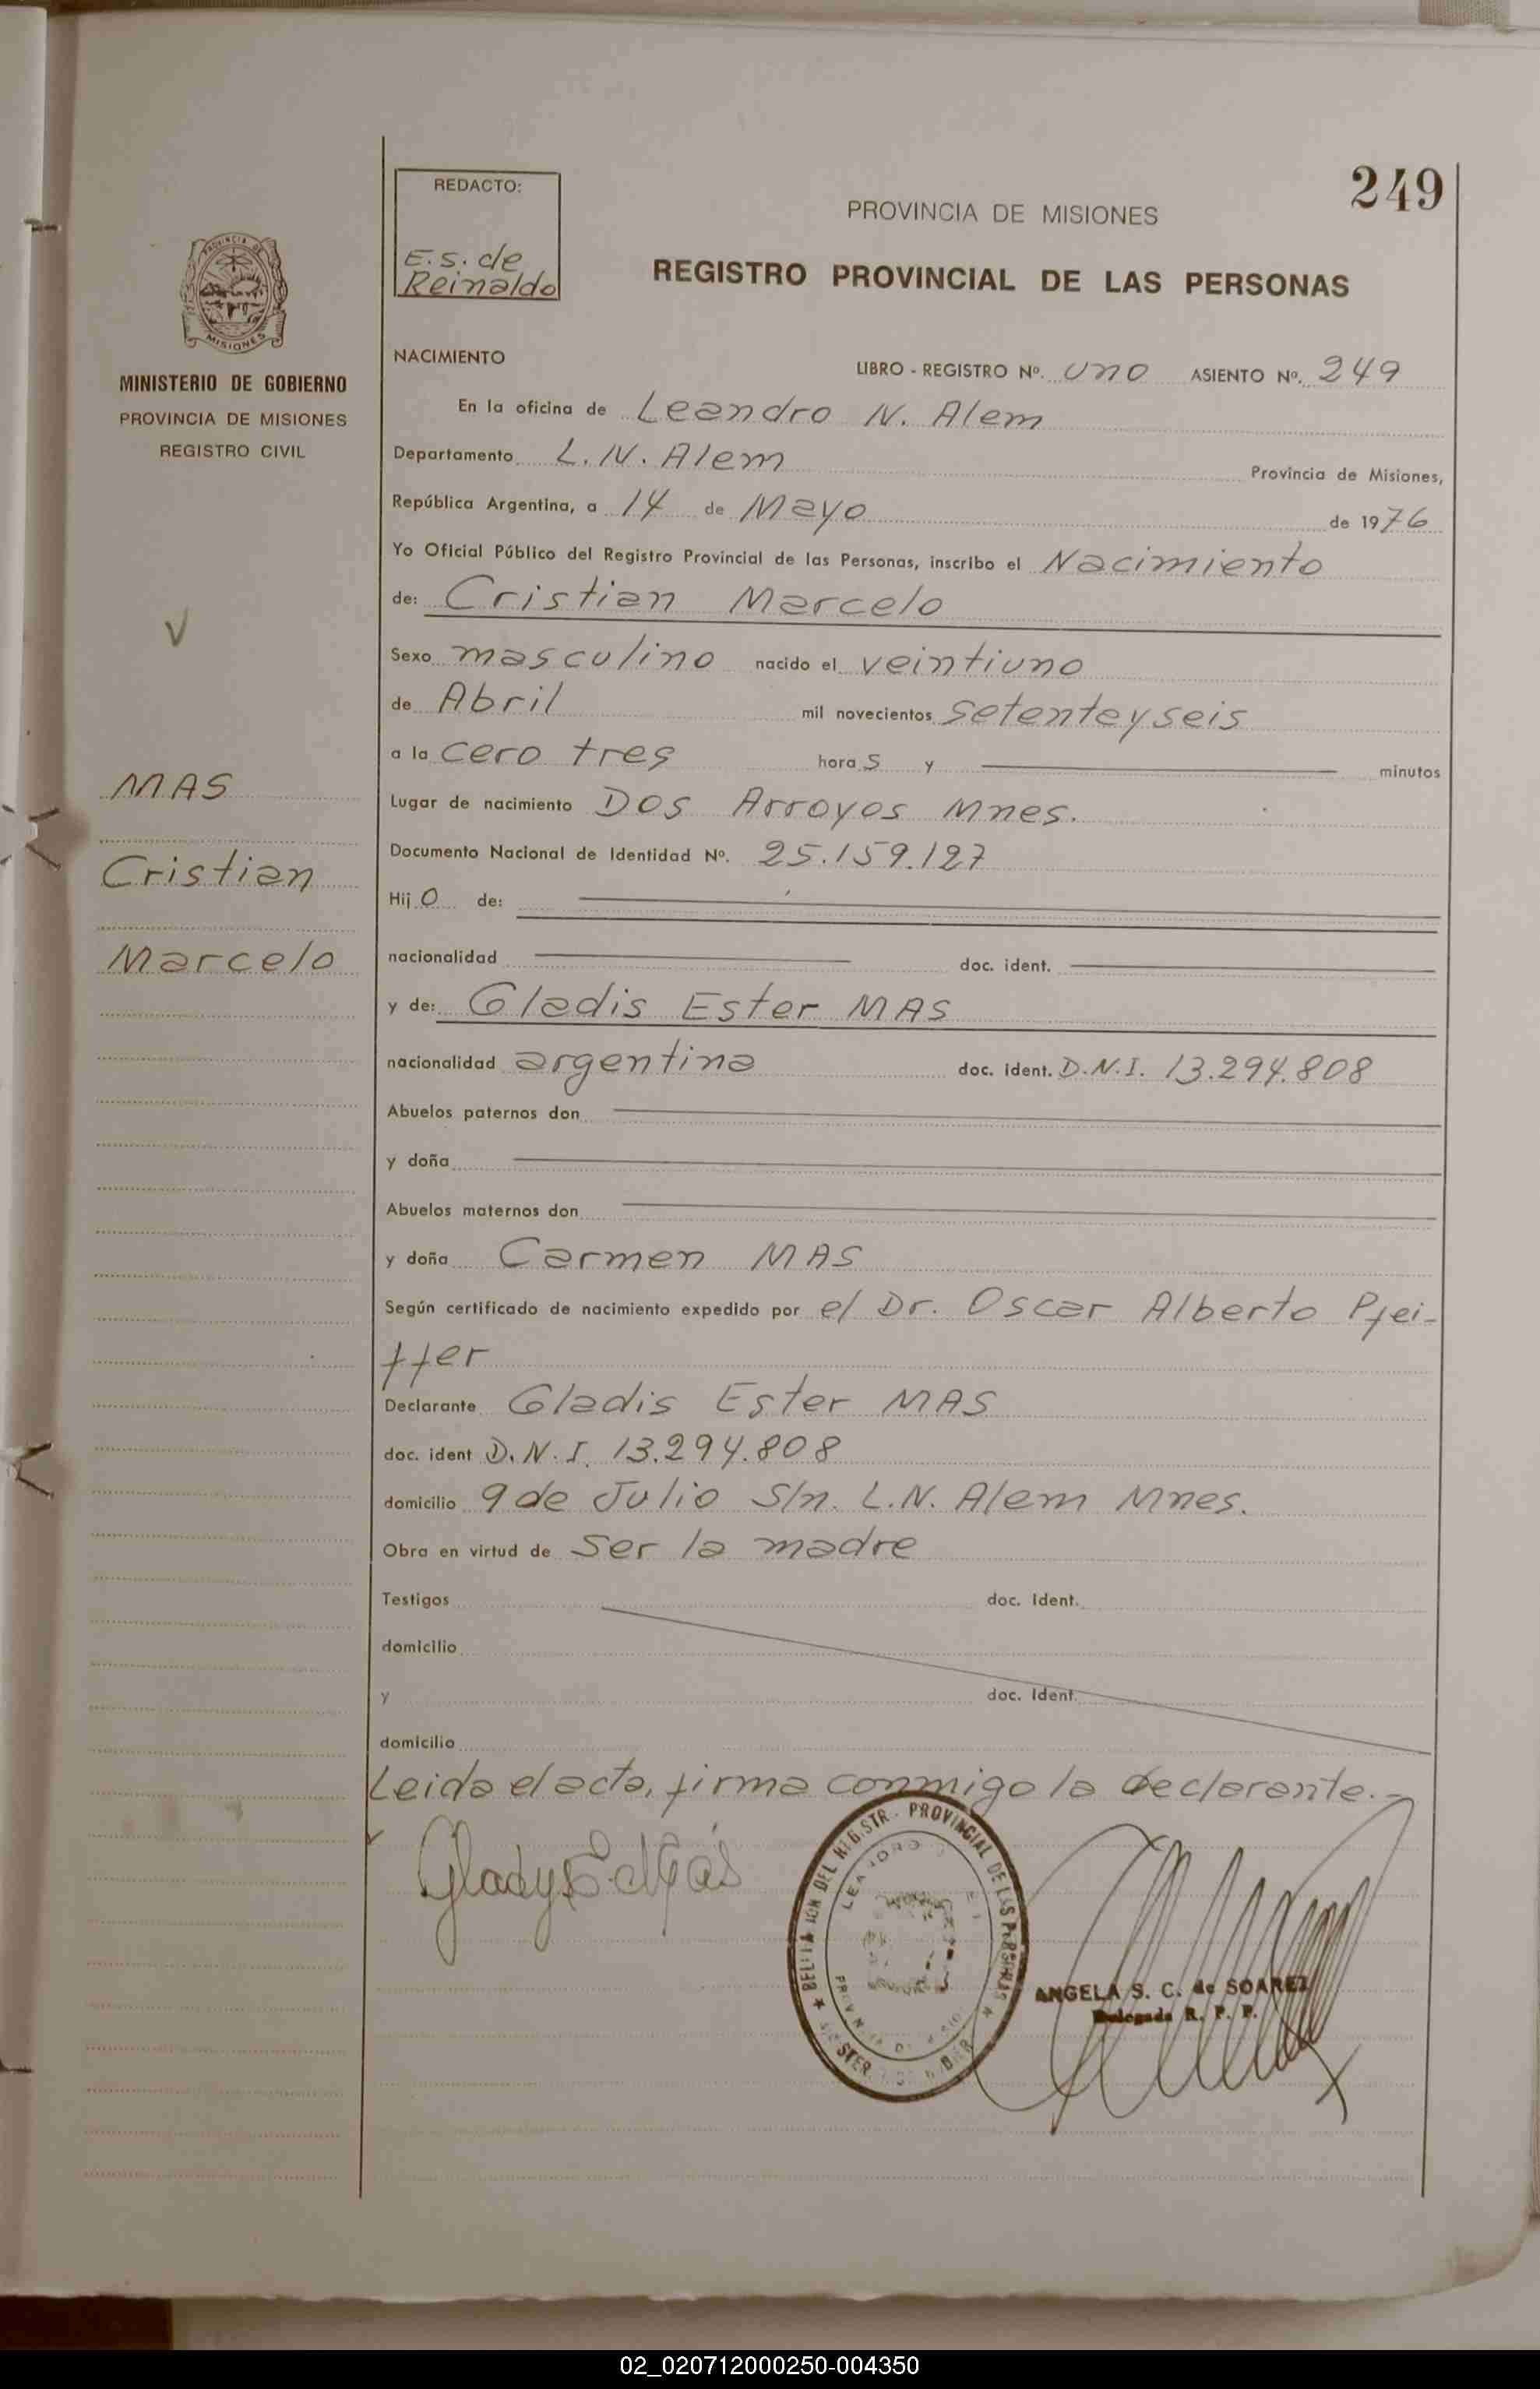 249
REDACTO:
E.S. de
Reinaldo
PROVINCIA DE MISIONES
REGISTRO PROVINCIAL DE LAS PERSONAS
PROVINCIA DE
MISIONES
MINISTERIO DE GOBIERNO
PROVINCIA DE MISIONES
REGISTRO CIVIL
MAS
Cristian
Marcelo
NACIMIENTO LIBRO - REGISTRO Nº. uno ASIENTO Nº. 249
En la oficina de Leandro N. Alem
Departamento L.N. Alem Provincia de Misiones,
República Argentina, a 14 de Mayo de 1976
Yo Oficial Público del Registro Provincial de las Personas, inscribo el Nacimiento
de: Cristian Marcelo
Sexo masculino nacido el veintiuno
de Abril mil novecientos setentayseis
a la cero tres horas y minutos
Lugar de nacimiento Dos Arroyos Mnes.
Documento Nacional de Identidad Nº. 25.159.127
Hijo de:
nacionalidad doc. ident.
y de: Gladis Ester MAS
nacionalidad argentina doc. ident. D.N.I. 13.294.808
Abuelos paternos don
y doña
Abuelos maternos don
y doña Carmen MAS
Según certificado de nacimiento expedido por el Dr. Oscar Alberto Pfei-
ffer
Declarante Gladis Ester MAS
doc. ident D.N.I. 13.294.808
domicilio 9 de Julio S/n. L.N. Alem Mnes.
Obra en virtud de ser la madre
Testigos doc. Ident.
domicilio
y doc. Ident.
domicilio
Leida el acta, firma conmigo la declarante.-
Gladys E. Más
DEL REGISTR. PROVINCIAL DE LAS PERSONAS
LEANDRO
ANGELA S. C. de SOAREZ
Delegada R. P. P.
02_020712000250-004350